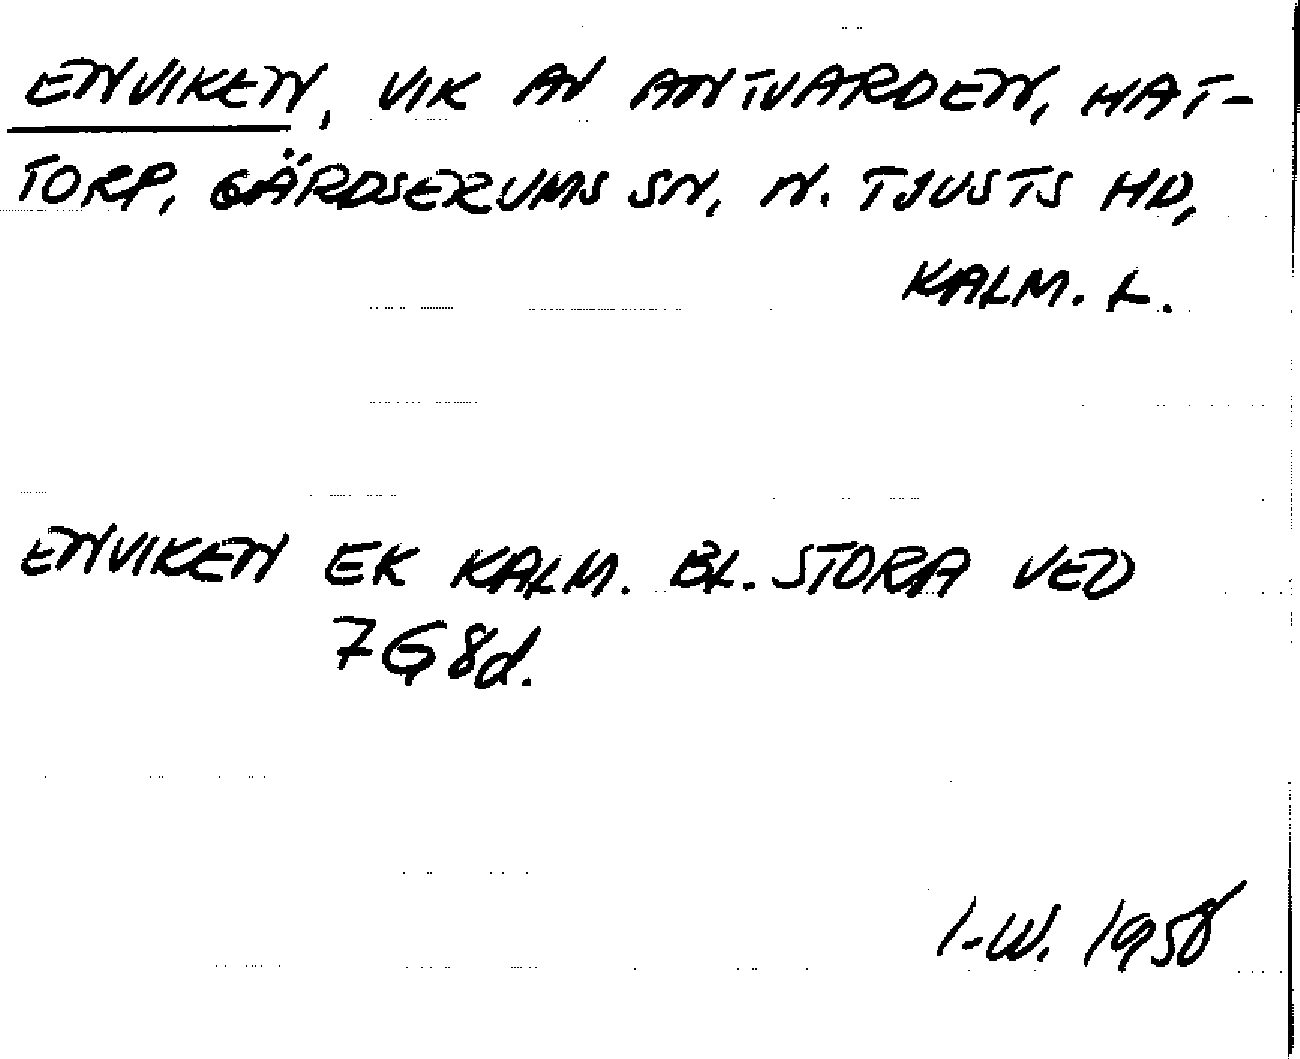 ENVIKEN, VIK AV ANTVARDEN, HAT-
TORP, GÄRDSERUMS SN, N. TJUSTS HD,
KALM. L.
ENVIKEN EK KALM. BL. STORA VED
7G8d.
I-W. 1958